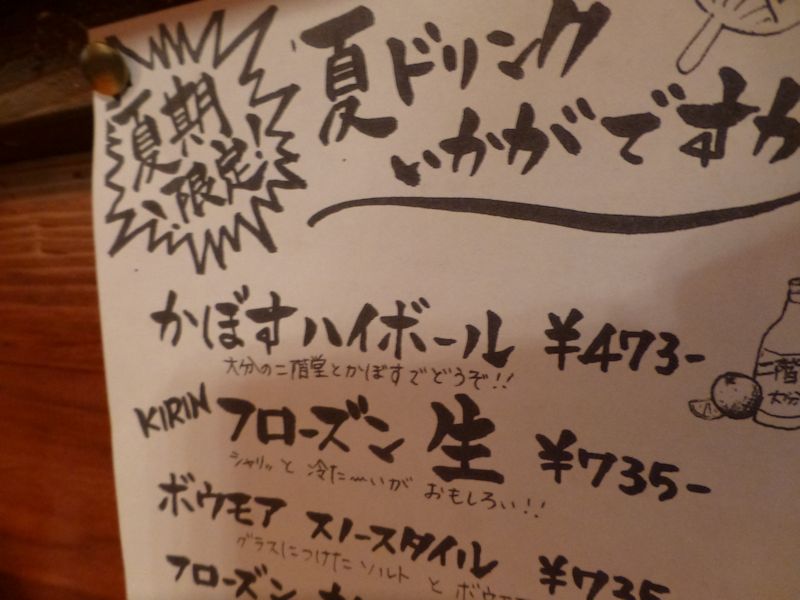 夏期
限定!
夏ドリンク
いかがですか
かぼすハイボール ¥473-
大分の二階堂とかぼすでどうぞ!!
KIRIN フローズン 生 ¥735-
シャリッと 冷た〜いが おもしろい!!
ボウモア スノースタイル ¥735
グラスにつけた ソルト と ボウモ
フローズン
二階
大分